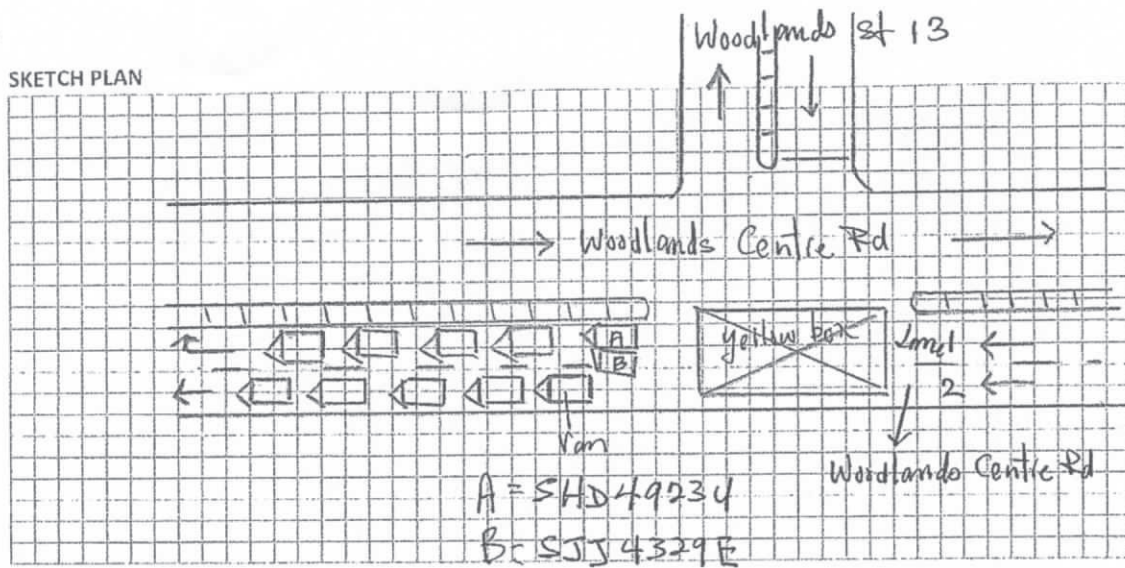 Woodlands St 13
SKETCH PLAN
Woodlands Centre Rd
yellow box
Lane1
2
A
B
Van
Woodlands Centre Rd
A = SHD4923U
B = SJJ4329E